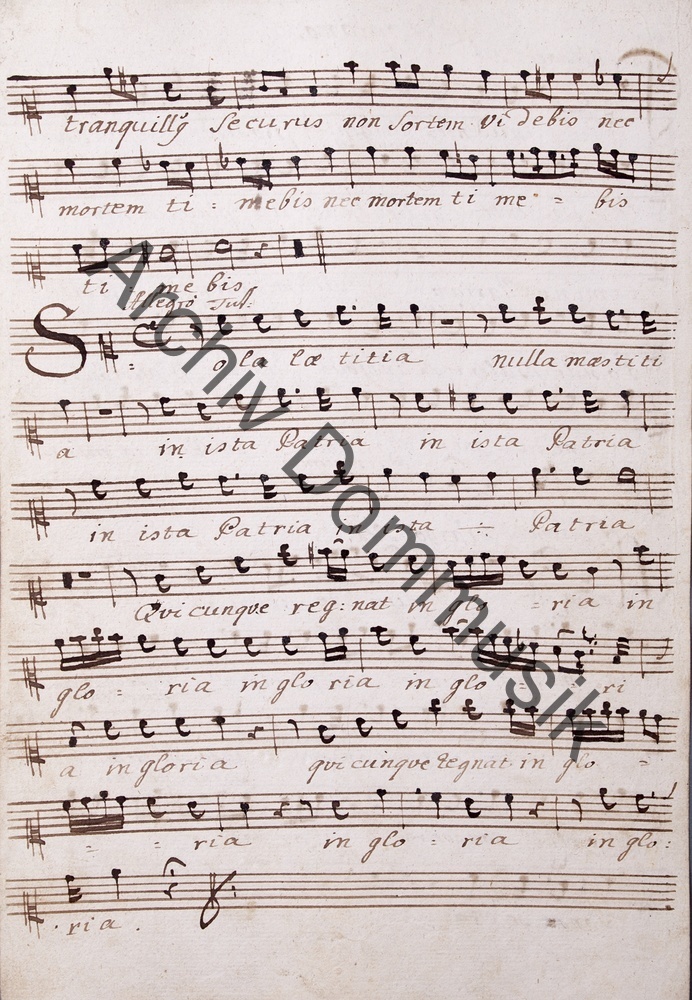 tranquillg securus non sortem videbis nec
mortem ti : mebis nec mortem ti me = bis
ti : me bis
Allegro Tut:
Sola lœ titia nulla mœstiti
a in ista Patria in ista Patria
in ista Patria in ista ÷ Patria
Qvicunqve reg:nat in glo = ria in
glo = ria in glo ria in glo = ri
a in gloria qvicunqve regnat in glo =
= = ria in glo = ria in glo:
ria.
Archiv Dommusik